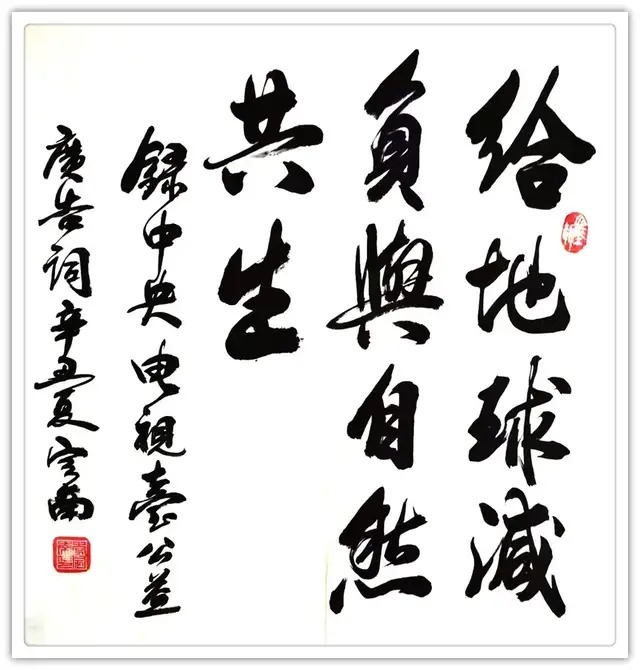 给地球減
負與自然
共生
録中央电視臺公益
廣告词辛丑夏